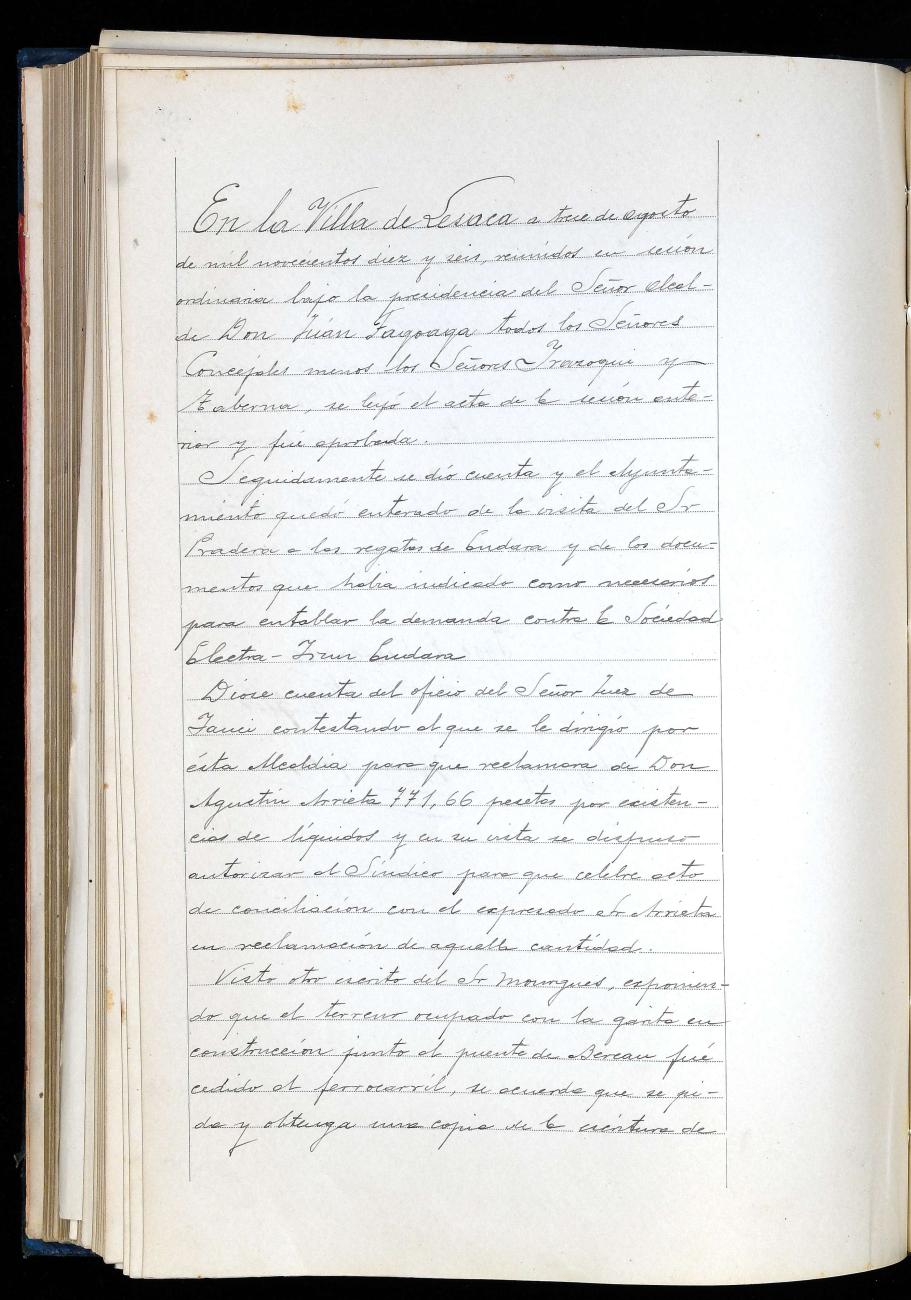 En la Villa de Lesaca a trece de agosto
de mil novecientos diez y seis, reunidos en sesión
ordinaria bajo la presidencia del Señor Alcal-
de Don Juán Fagoaga todos los Señores
Concejales menos los Señores Irazoqui y
Taberna, se leyó el acta de la sesión ante-
rior y fué aprobada.
Seguidamente se dió cuenta y el Ayunta-
miento quedó enterado de la visita del Sr
Pradera a las regatas de Endara y de los docu-
mentos que habia indicado como necesarios
para entablar la demanda contra la Sociedad
Electra-Irun Endara
Diose cuenta del oficio del Señor Juez de
Yanci contestando al que se le dirigió por
ésta Alcaldia para que reclamara de Don
Agustín Arrieta 771,66 pesetas por existen-
cias de líquidos y en su vista se dispuso
autorizar al Síndico para que celebre acto
de conciliación con el expresado Sr Arrieta
en reclamación de aquella cantidad.
Visto otro escrito del Sr Mourgues, exponien-
do que el terreno ocupado con la garita en
construcción junto al puente de Bereau fué
cedido al ferrocarríl, se acuerda que se pi-
da y obtenga una copia de la escritura de